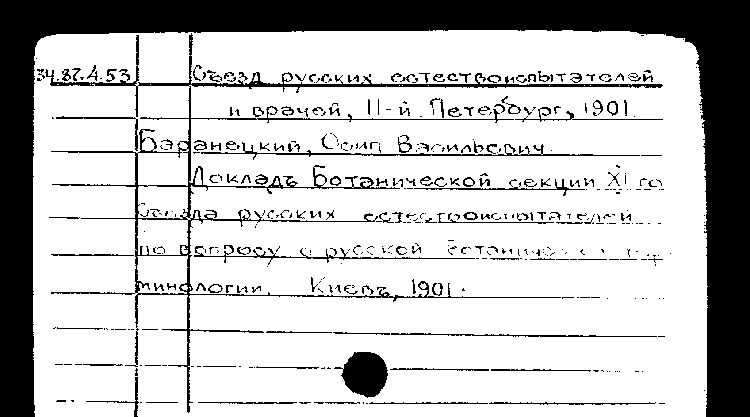 34.87.4.53 Съезд русских естествоиспытателей
и врачей, 11-й. Петербург, 1901.
Баранецкий, Осип Васильевич.
Докладъ Ботанической секции XI го
съезда русских естествоиспытателей
по вопросу о русской ботанической тер
минологии. Киевъ, 1901.